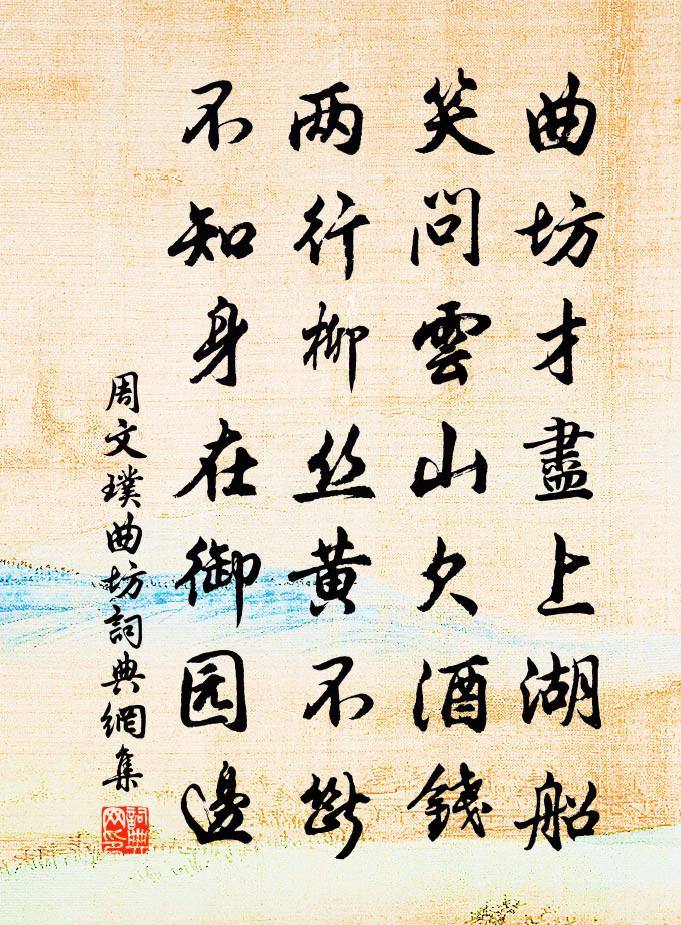 曲坊才盡上湖船
笑問雲山欠酒錢
两行柳丝黄不断
不知身在御园邊
周文璞曲坊詞典網集
詞典网印